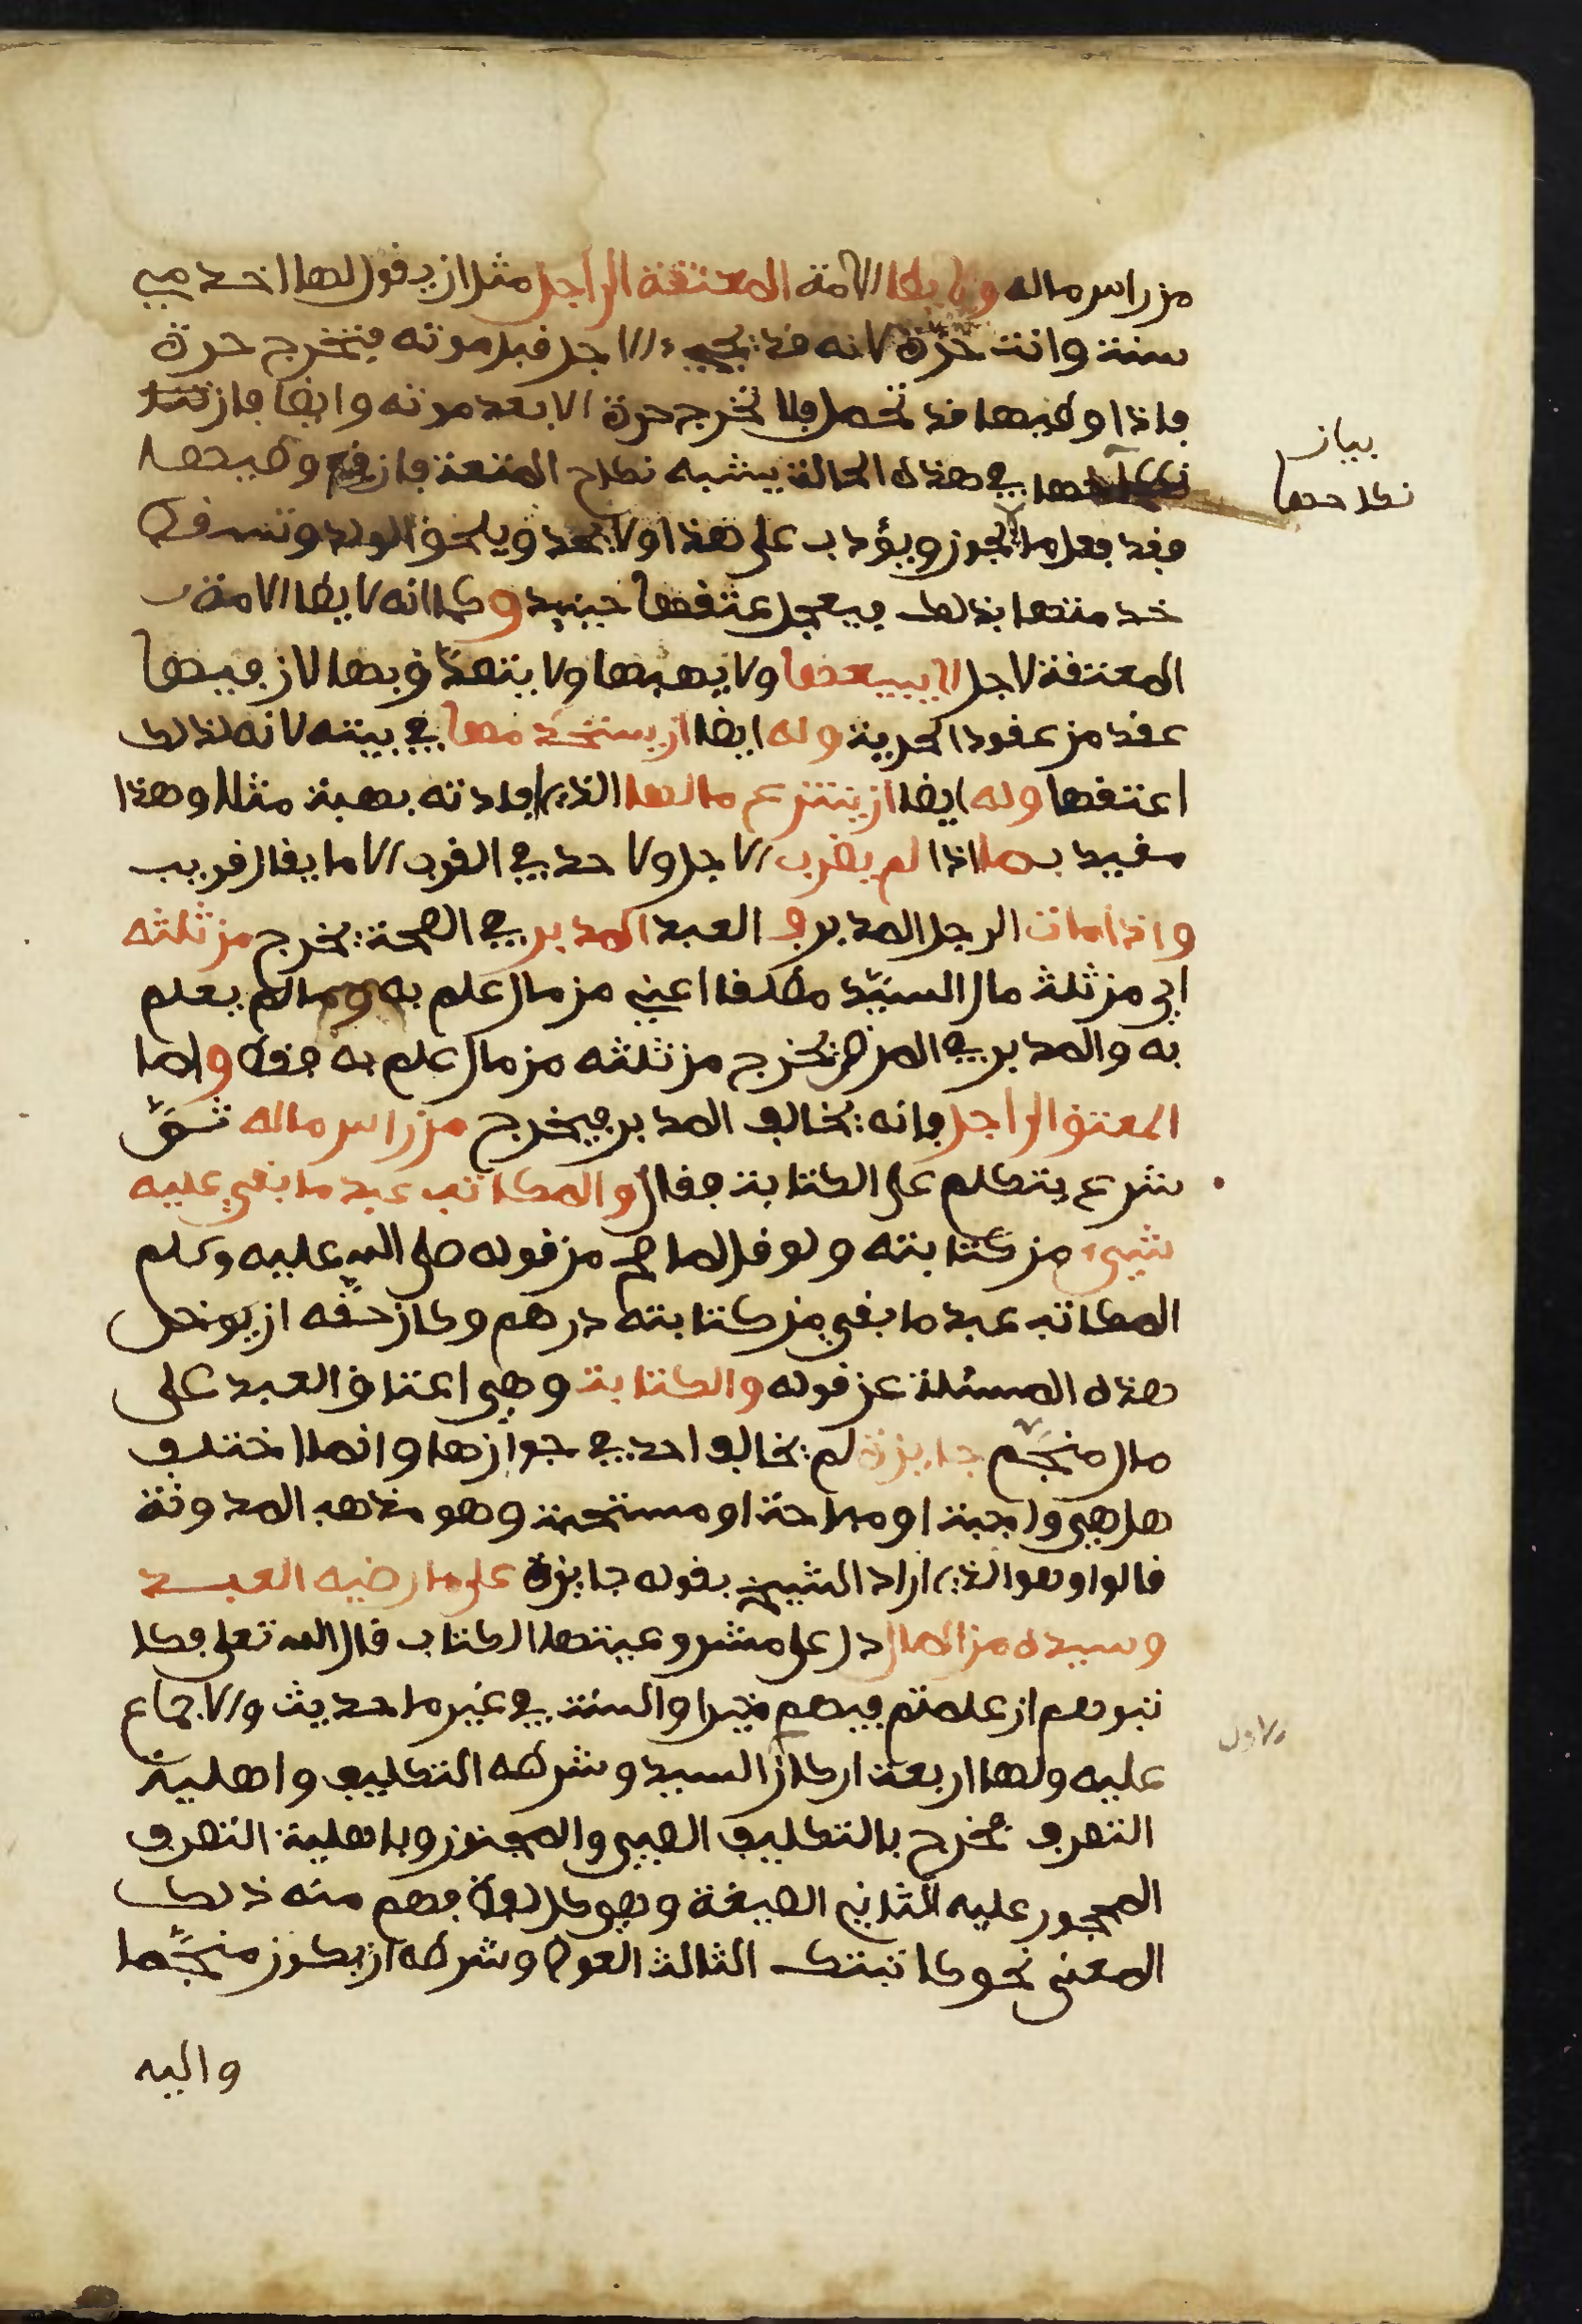 من راس ماله ولا يطا الامة المعتقة الى اجل مثل ان يقول لها اخدميني
سنة وانت حرة لانه قد يجيء الاجل قبل موته فتخرج حرة
فاذا وطيها قد تحمل فلا تخرج حرة الا بعد موته وايضا فان
نكاحها في هذه الحالة يشبه نكاح المتعة فان وقع وطيحها
بيان
نكاحها
فقد فعل ما لا يجوز ويؤدب على هذا ولا يحد ويلحق الولد وتسقط
خدمتها بذلك فيعجل عتقها حينيد وكما انه لا يطا الامة
المعتقة لاجل لا يبيعها ولا يهبها ولا يتصدق بها لان فيها
عقد من عقود الحرية وله ايضا ان يستخدمها في بيته لانه لذلك
اعتقها وله ايضا ان ينتزع مالها الذي افادته بهبة مثلا وهذا
مقيد بما اذا لم يقرب الاجل ولا حد في القرب الا ما يقال قريب
واذا مات الرجل المدبر و العبد المدبر في الصحة يخرج من ثلثه
اي من ثلث مال السيد مطلقا اعني من مال علم به وما لم يعلم
به والمدبر في المرض يخرج من ثلثه من مال علم به فقط واما
المعتق الى اجل فانه يخالف المدبر فيخرج من راس ماله ثم
شرع يتكلم على الكتابة فقال والمكاتب عبد ما بقي عليه
شيء من كتابته ولو قل لما صح من قوله صلى الله عليه وسلم
المكاتب عبد ما بقي من كتابته درهم وكان حقه ان يوخر
هذه المسئلة عن قوله والكتابة وهي اعتاق العبد على
مال منجم جايزة لم يخالف احد في جوازها وانما اختلف
هل هي واجبة او مباحة او مستحبة وهو مذهب المدونة
قالوا وهو الذي اراد الشيخ بقوله جايزة على ما رضيه العبد
وسيده من المال دل على مشروعيتها الكتاب قال الله تعلى فكا
تبوهم ان علمتم فيهم خيرا والسنة في غير ما حديث والاجماع
عليه ولها اربعة اركان السيد وشرطه التكليف واهلية
الاول
التصرف فخرج بالتكليف الصبي والمجنون وباهلية التصرف
المحجور عليه الثاني الصيغة وهو كل لفظ فهم منه ذلك
المعنى نحو كاتبتك الثالث العوض وشرطه ان يكون منجما
واليه